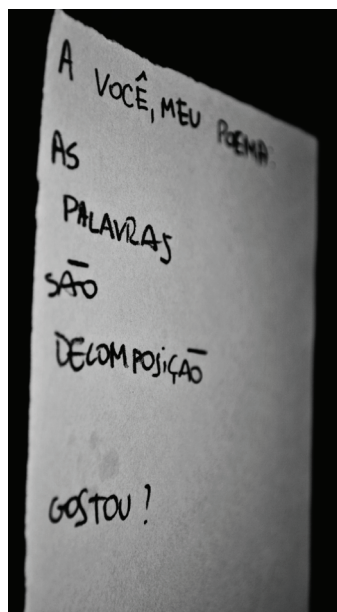 A VOCÊ, MEU POEMA
AS
PALAVRAS
SÃO
DECOMPOSIÇÃO
GOSTOU?